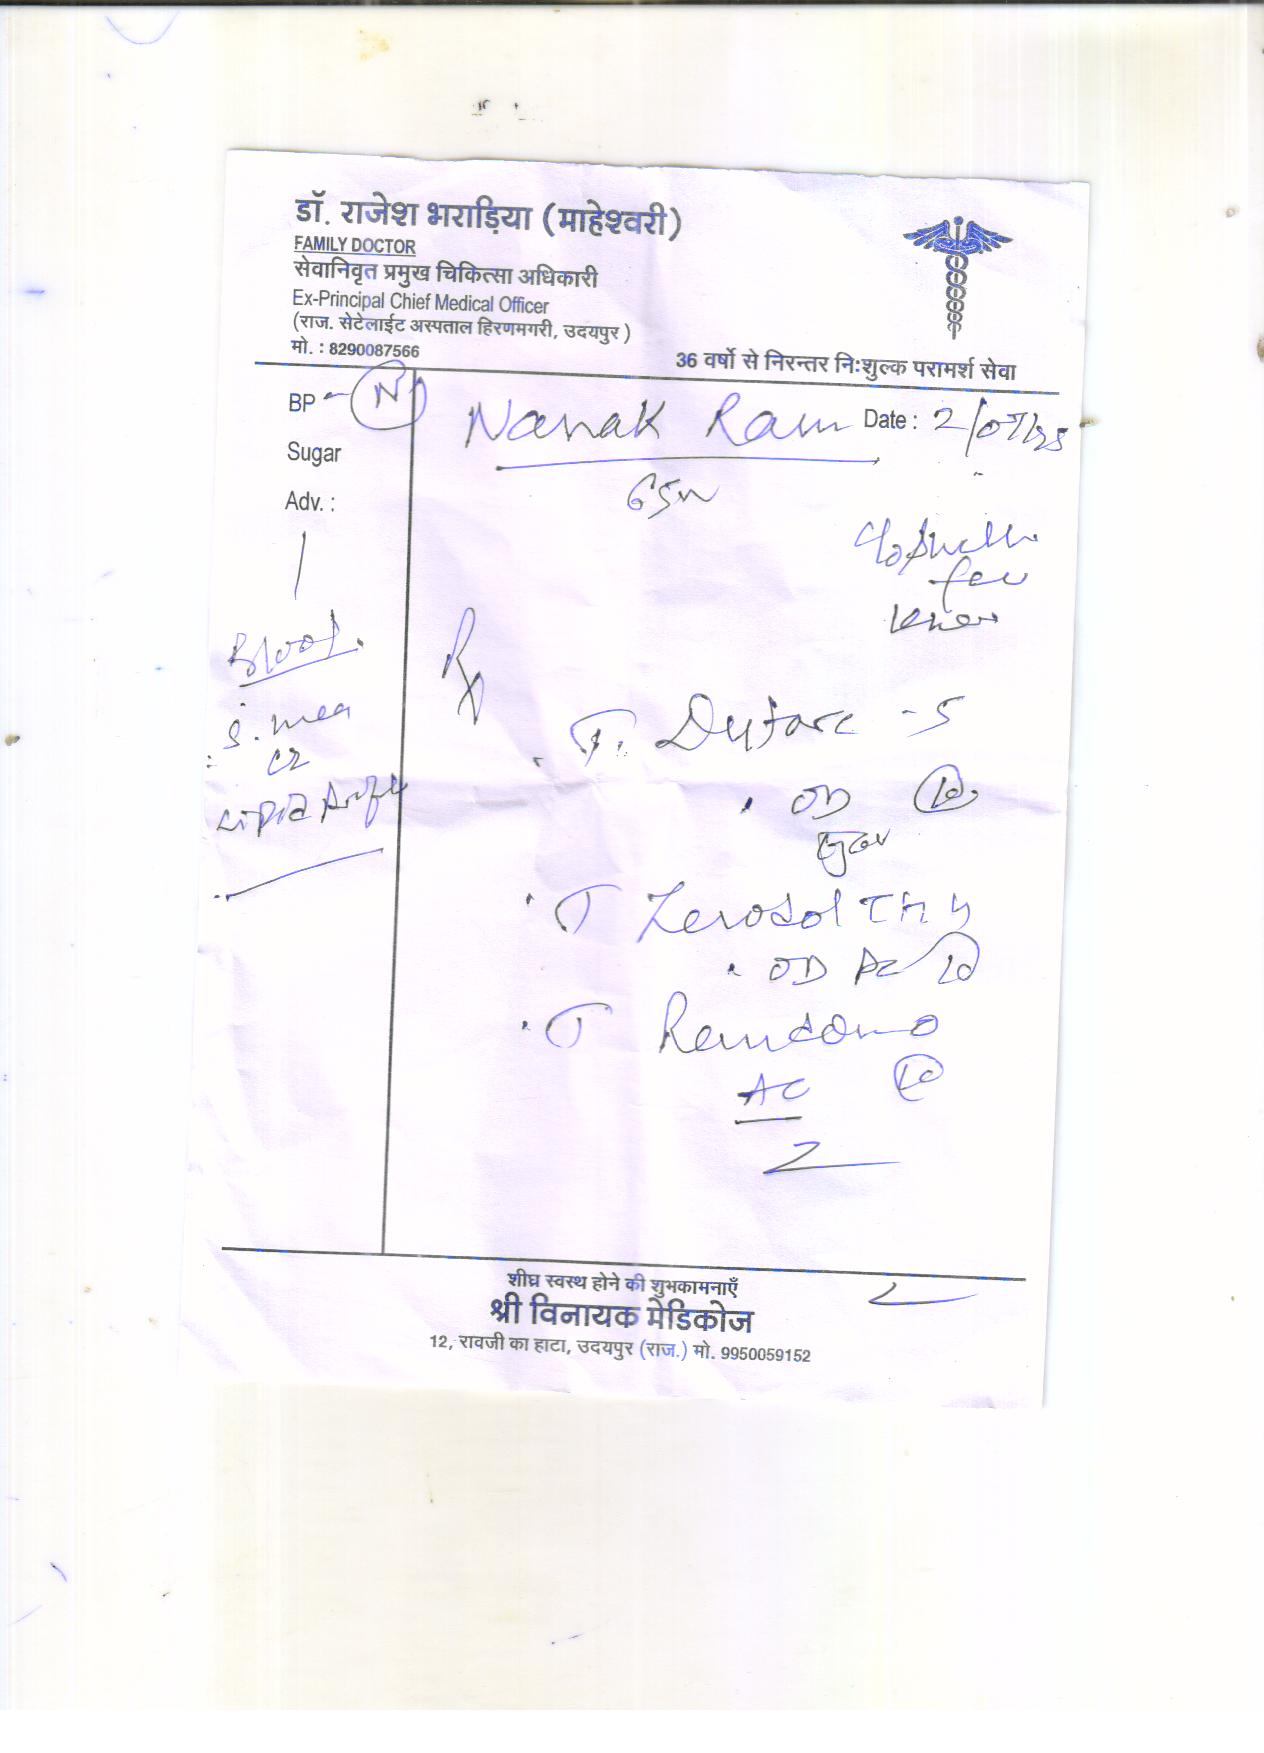 डॉ. राजेश भराड़िया (माहेश्वरी)
FAMILY DOCTOR
सेवानिवृत प्रमुख चिकित्सा अधिकारी
Ex-Principal Chief Medical Officer
(राज. सेटेलाईट अस्पताल हिरणमगरी, उदयपुर )
मो. : 8290087566
36 वर्षो से निरन्तर निःशुल्क परामर्श सेवा
BP - N
Nanak Ram
Date : 2/07/25
Sugar
Adv. :
Blood.
Lipid
T.
OD 10
T Zerodol TH 4
OD PC 10
T
AC 10
शीघ्र स्वस्थ होने की शुभकामनाएँ
श्री विनायक मेडिकोज
12, रावजी का हाटा, उदयपुर (राज.) मो. 9950059152